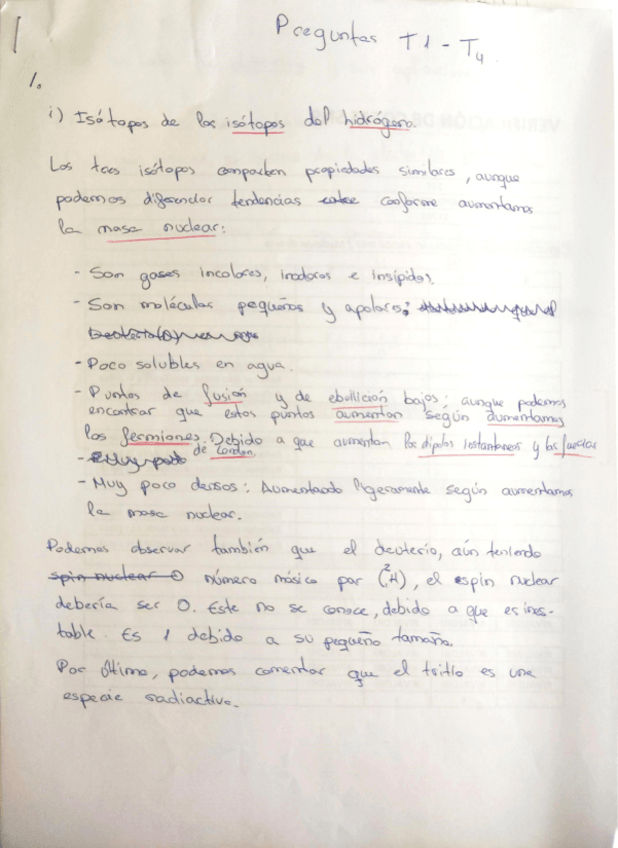 1
Preguntas T1 - T4
1.
i) Isótopos de los isótopos del hidrógeno.
Los tres isótopos comparten propiedades similares, aunque
podemos diferenciar tendencias entre conforme aumentamos
la masa nuclear:
- Son gases incoloros, inodoros e insípidos.
- Son moléculas pequeñas y apolares;
- Poco solubles en agua.
- Puntos de fusión y de ebullición bajos; aunque podemos
encontrar que estos puntos aumentan según aumentamos
los fermiones. Debido a que aumentan los dipolos instantáneos y las fuerzas
de London.
- Muy poco densos: Aumentando ligeramente según aumentamos
la masa nuclear.
Podemos observar también que el deuterio, aún teniendo
spin nuclear 0 número másico par (²H), el espin nuclear
debería ser 0. Este no se conoce, debido a que es ines-
table. Es 1 debido a su pequeño tamaño.
Por último, podemos comentar que el tritio es una
especie radiactiva.